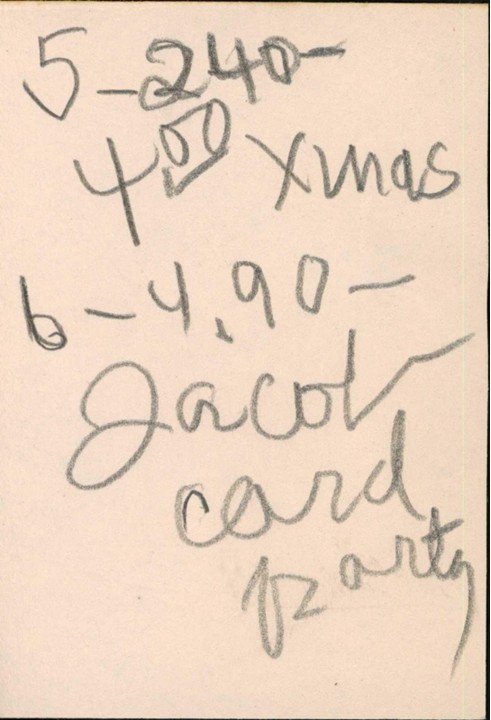 5-240-
4 00 Xmas
6-4.90-
Jacob
card
party